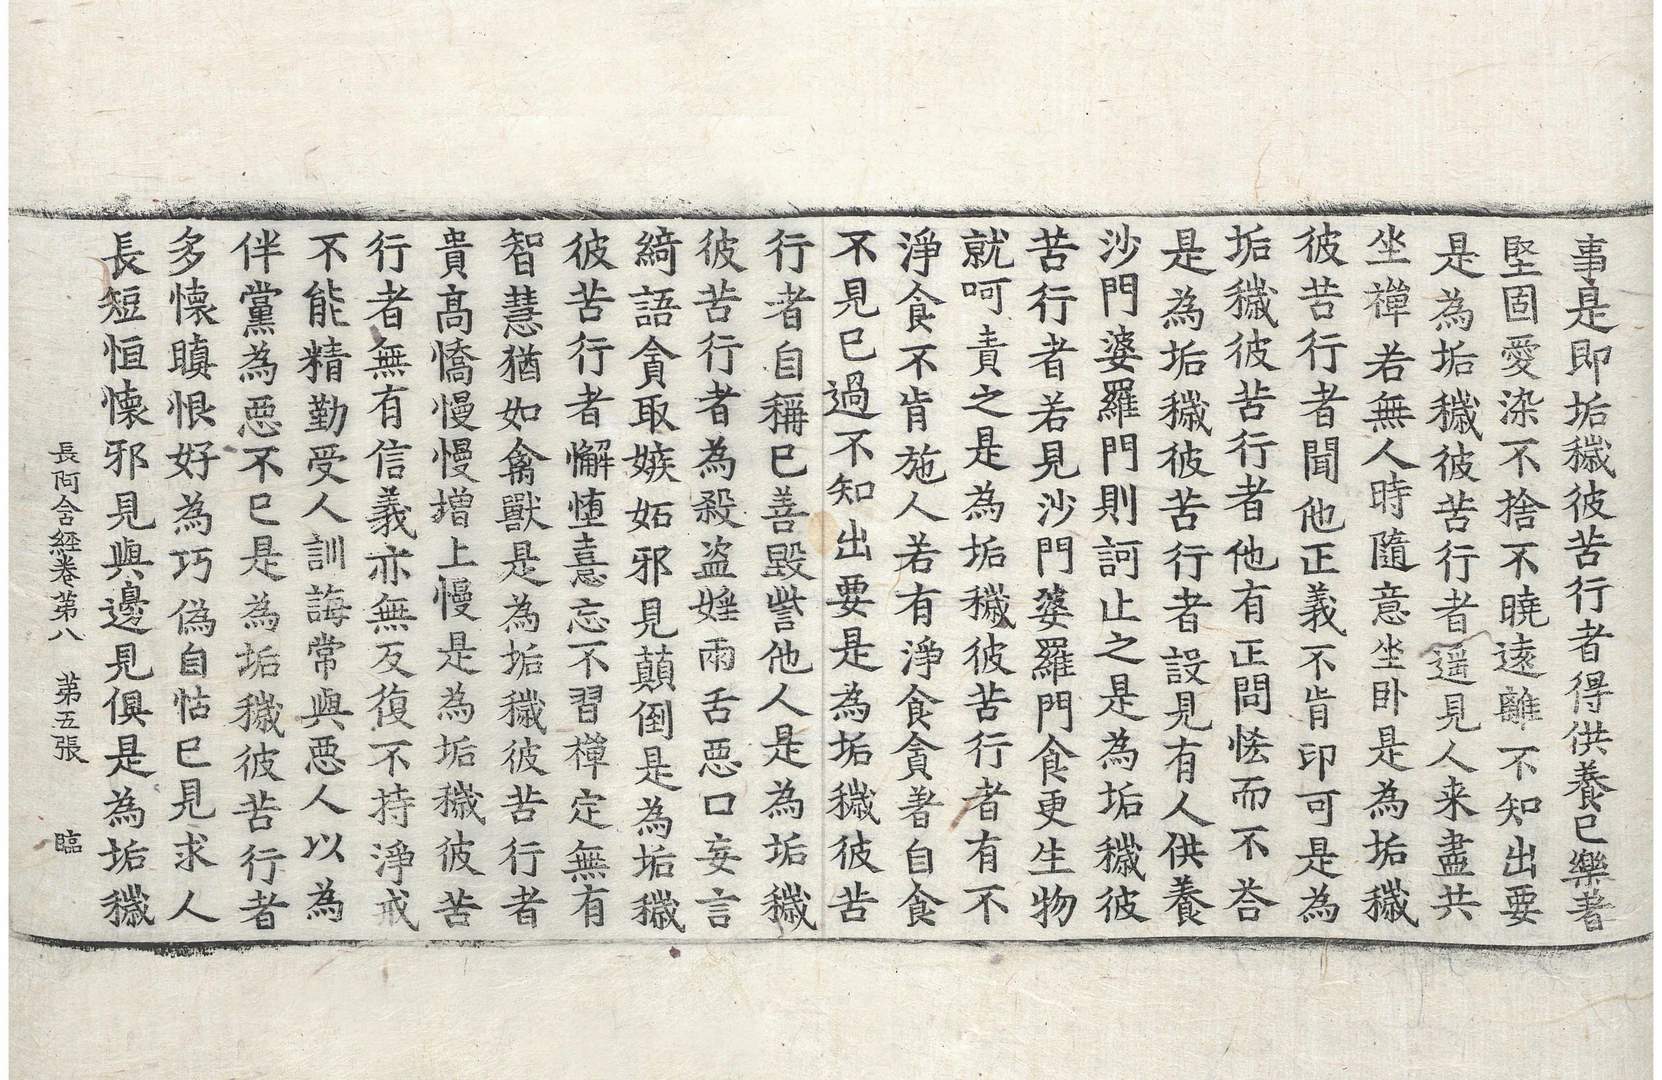 事是即垢穢彼苦行者得供養已樂著
堅固愛染不捨不曉遠離不知出要
是為垢穢彼苦行者遥見人来盡共
坐禪若無人時隨意坐卧是為垢穢
彼苦行者聞他正義不肯印可是為
垢穢彼苦行者他有正問恡而不荅
是為垢穢彼苦行者設見有人供養
沙門婆羅門則訶止之是為垢穢彼
苦行者若見沙門婆羅門食更生物
就呵責之是為垢穢彼苦行者有不
淨食不肯施人若有淨食貪著自食
不見已過不知出要是為垢穢彼苦
行者自稱已善毀訾他人是為垢穢
彼苦行者為殺盗婬兩舌惡口妄言
綺語貪取嫉妬邪見顛倒是為垢穢
彼苦行者懈墮憙忘不習禪定無有
智慧猶如禽獸是為垢穢彼苦行者
貴高憍慢慢增上慢是為垢穢彼苦
行者無有信義亦無反復不持淨戒
不能精勤受人訓誨常與惡人以為
伴黨為惡不已是為垢穢彼苦行者
多懷瞋恨好為巧偽自怙已見求人
長短恒懷邪見與邊見俱是為垢穢
長阿含經卷第八　第五張　臨